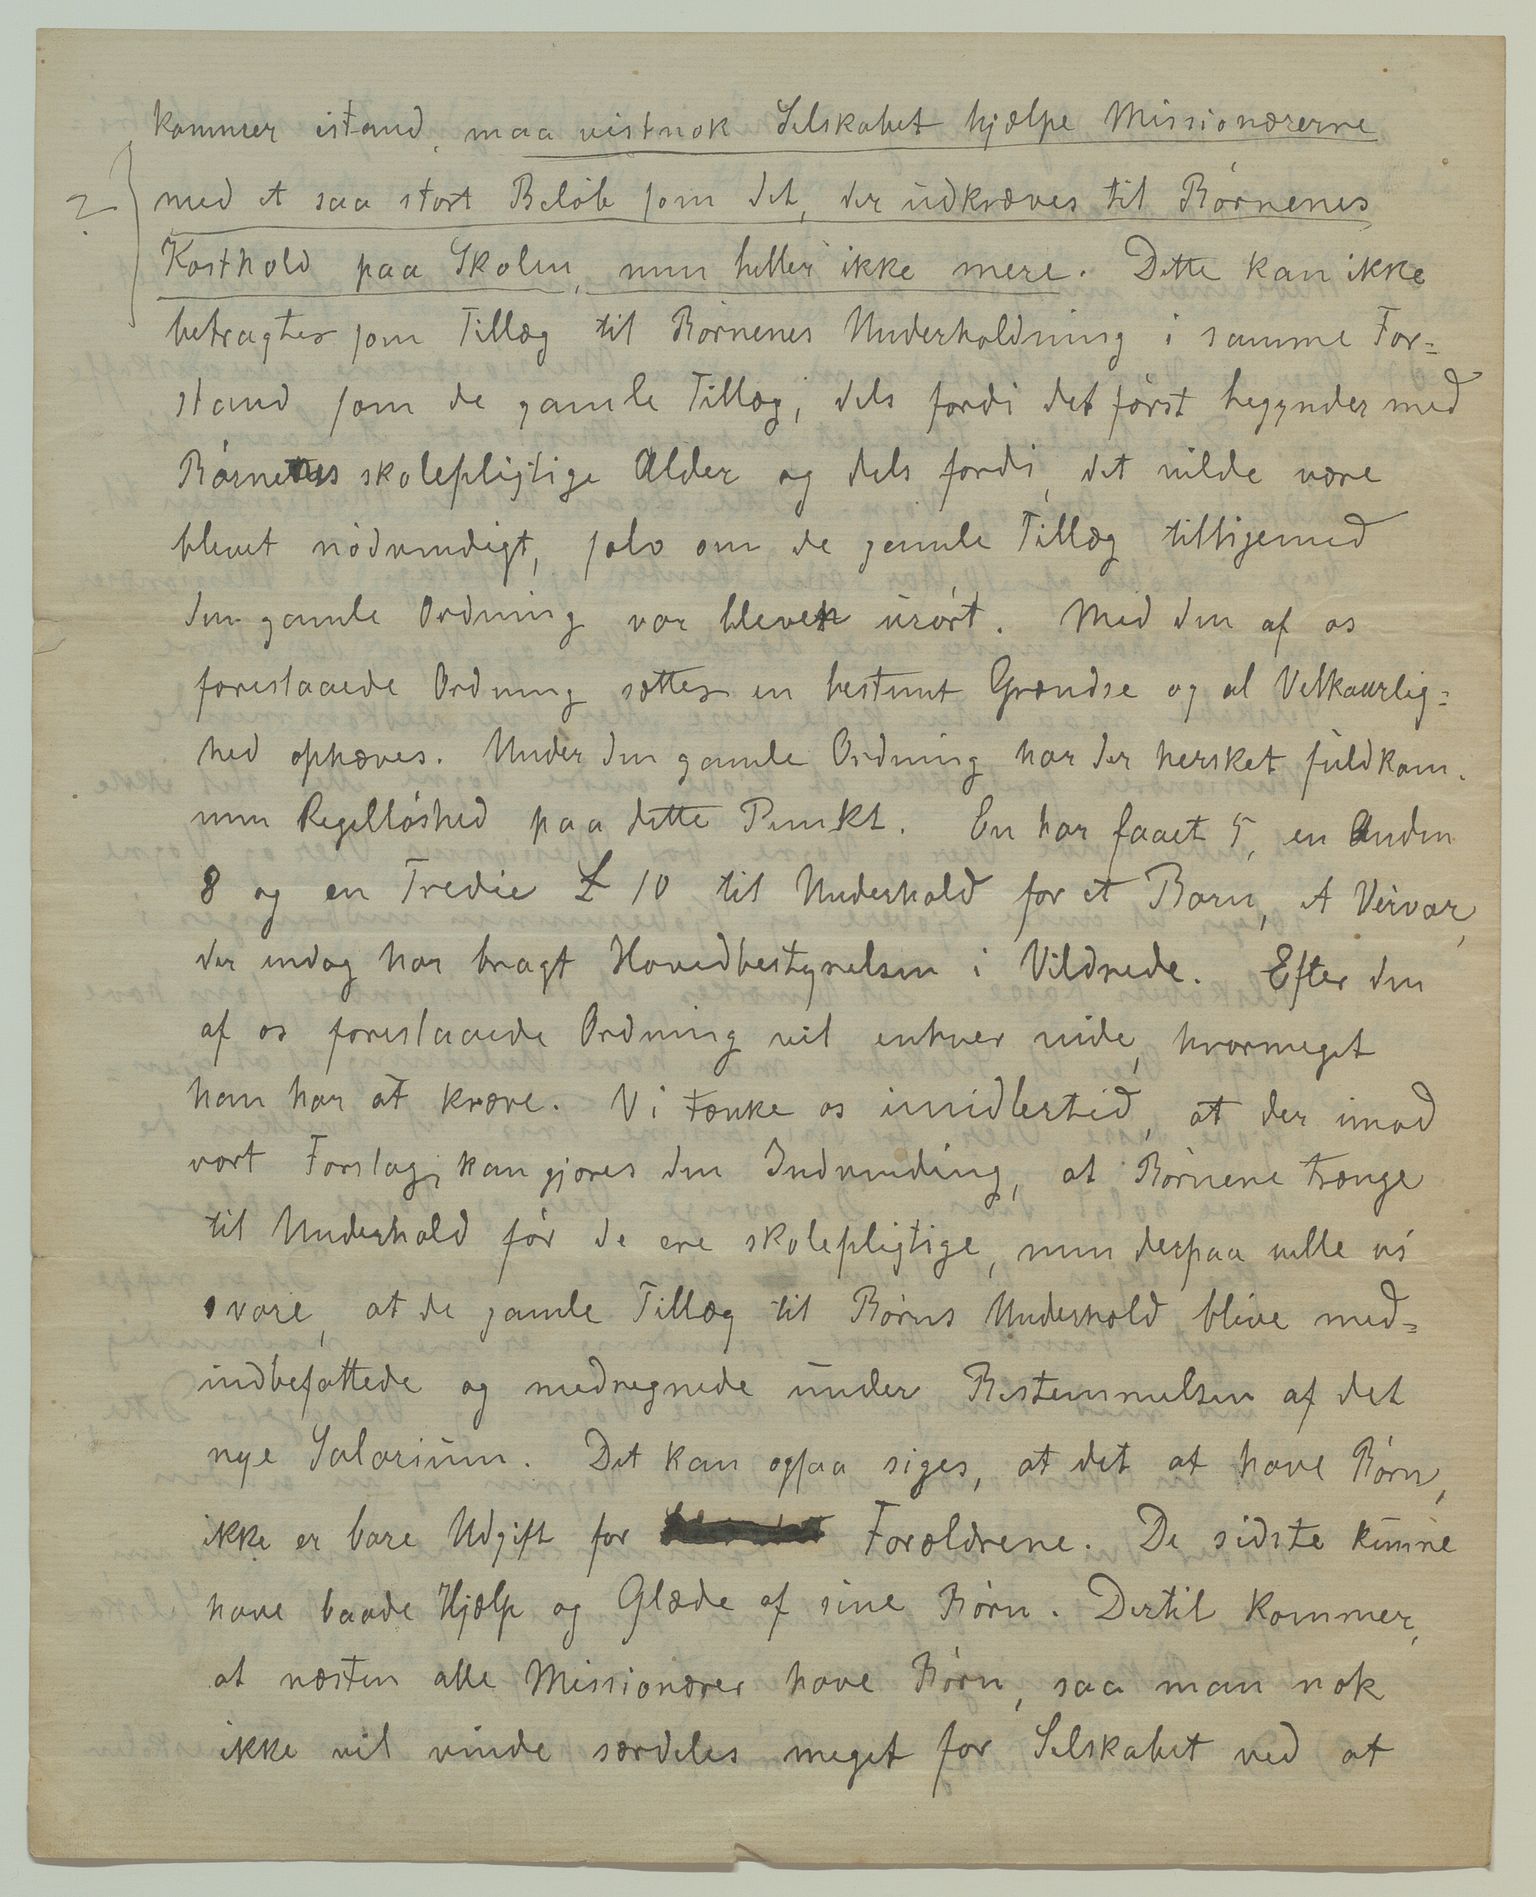 kommer istand, maa vistnok Selskabet hjælpe Missionærerne
? med et saa stort Beløb som det, der udkræves til Børnenes
Kosthold paa Skolen, men heller ikke mere. Dette kan ikke
betragtes som Tillæg til Børnenes Underholdning i samme For=
stand som de gamle Tillæg, dels fordi det først begynder med
Børnenes skolepligtige Alder og dels fordi, det vilde være
blevet nødvendigt, selv om de gamle Tillæg tilligemed
den gamle Ordning var bleven urørt. Med den af os
foreslaaede Ordning sættes en bestemt Grændse og al Vilkaarlig=
hed ophæves. Under den gamle Ordning har der hersket fuldkom-
men Regelløshed paa dette Punkt. En har faaet 5, en Anden
8 og en Tredie £ 10 til Underhold for et Barn, et Virvar,
der endog har bragt Hovedbestyrelsen i Vildrede. Efter den
af os foreslaaede Ordning vil enhver vide, hvormeget
han har at kræve. Vi tænke os imidlertid, at der imod
vort Forslag, kan gjøres den Indvending, at Børnene trænge
til Underhold før de ere skolepligtige, men derpaa ville vi
svare, at de gamle Tillæg til Børns Underhold blive med=
indbefattede og medregnede under Bestemmelsen af det
nye Salarium. Det kan ogsaa siges, at det at have Børn,
ikke er bare Udgift for Forældrene. De sidste kunne
have baade Hjælp og Glæde af sine Børn. Dertil kommer,
at næsten alle Missionærer have Børn, saa man nok
ikke vil vinde særdeles meget for Selskabet ved at